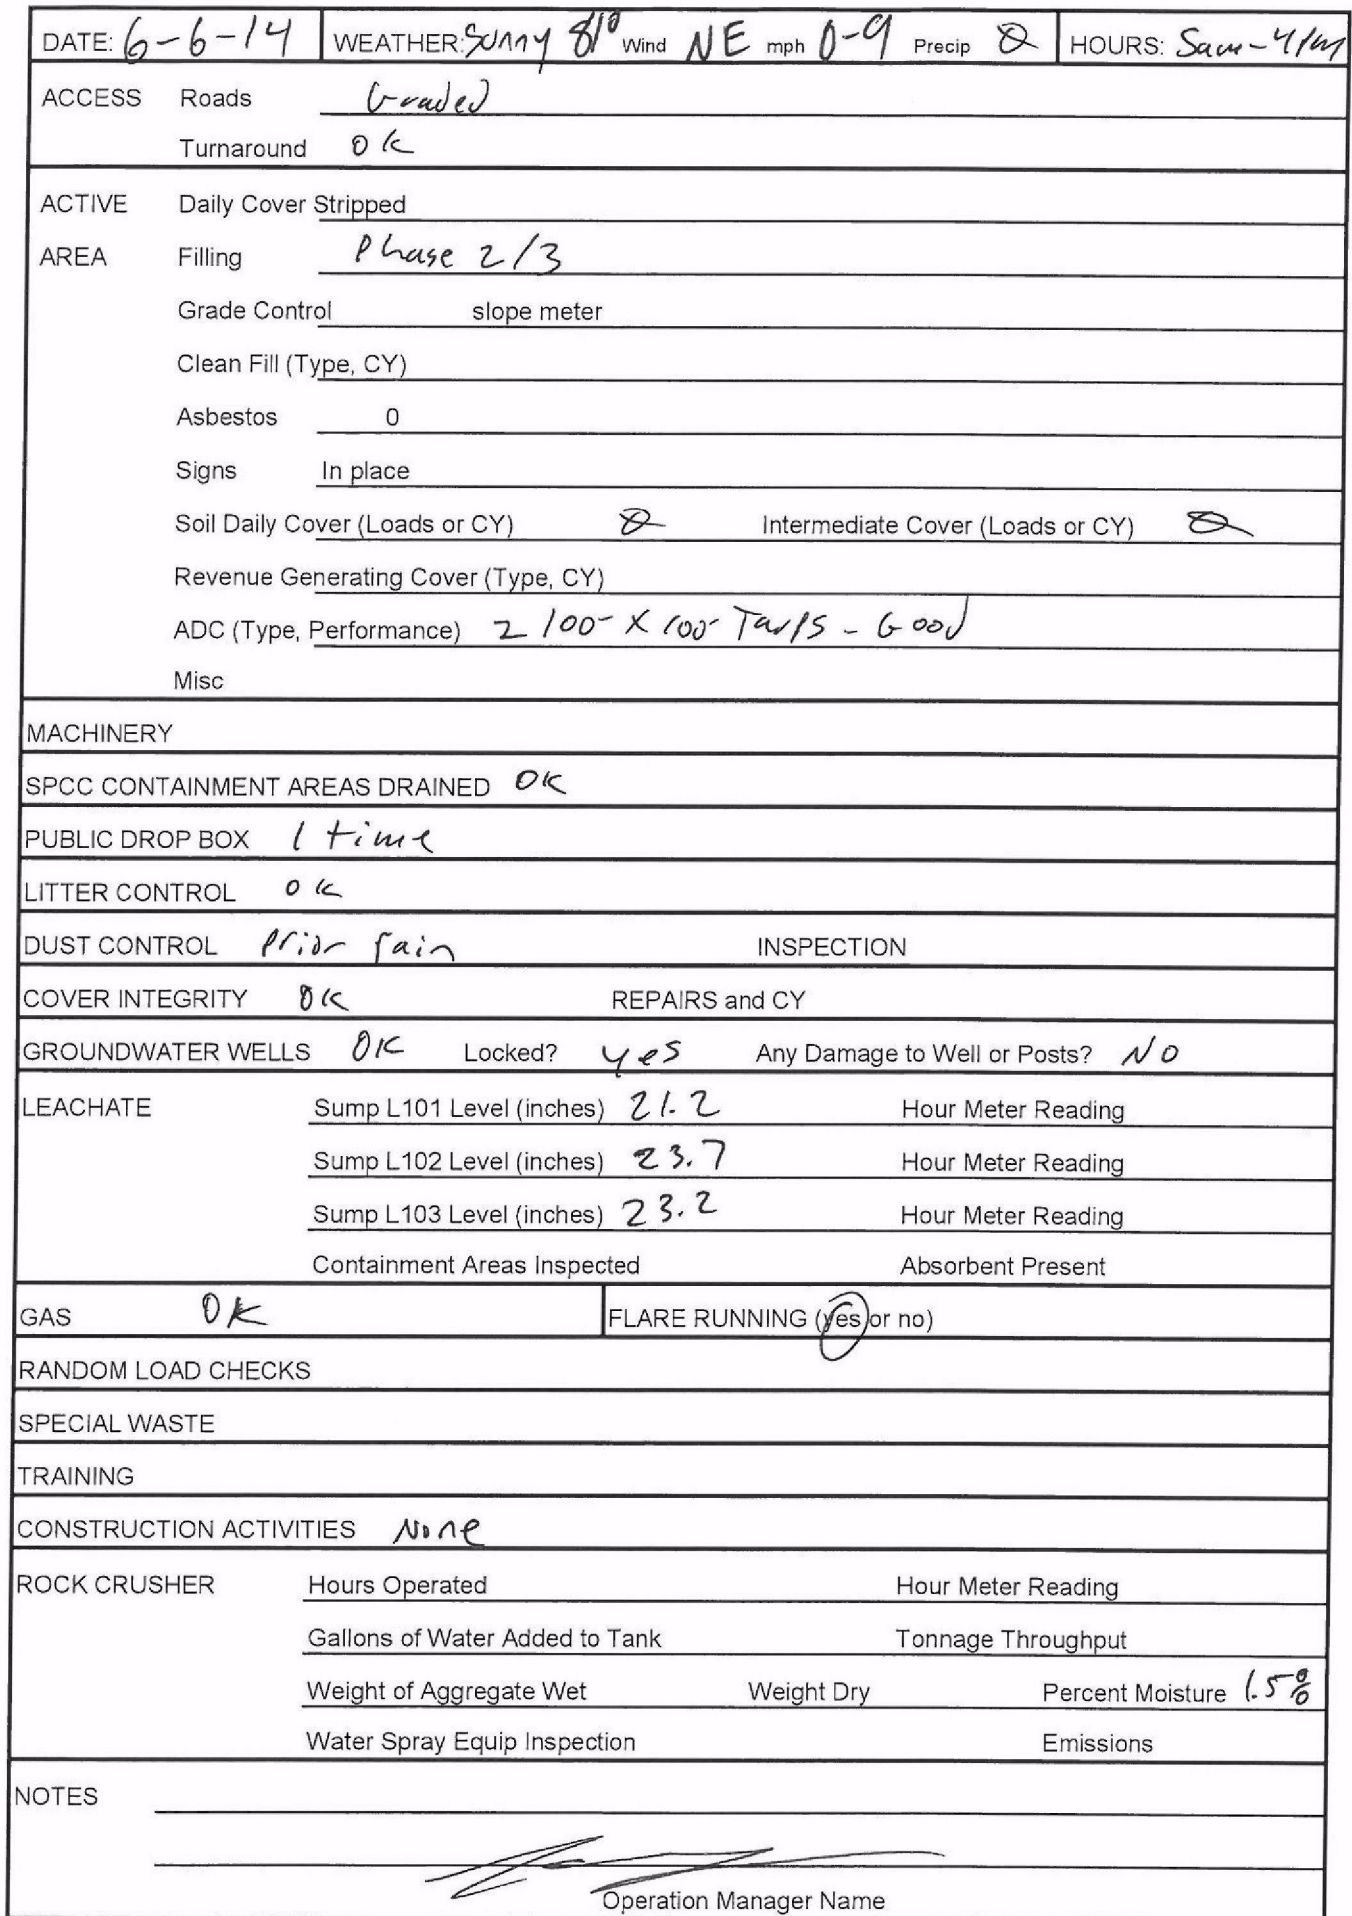 DATE: 6-6-14 WEATHER: Sunny 81° Wind NE mph 0-9 Precip 0 HOURS: 5am-4pm
ACCESS Roads Graded
Turnaround OK
ACTIVE Daily Cover Stripped
AREA Filling Phase 2/3
Grade Control slope meter
Clean Fill (Type, CY)
Asbestos 0
Signs In place
Soil Daily Cover (Loads or CY) 0 Intermediate Cover (Loads or CY) 0
Revenue Generating Cover (Type, CY)
ADC (Type, Performance) 2 100' X 100' Tarps - Good
Misc
MACHINERY
SPCC CONTAINMENT AREAS DRAINED OK
PUBLIC DROP BOX 1 time
LITTER CONTROL OK
DUST CONTROL Prior rain INSPECTION
COVER INTEGRITY OK REPAIRS and CY
GROUNDWATER WELLS OK Locked? yes Any Damage to Well or Posts? NO
LEACHATE Sump L101 Level (inches) 21.2 Hour Meter Reading
Sump L102 Level (inches) 23.7 Hour Meter Reading
Sump L103 Level (inches) 23.2 Hour Meter Reading
Containment Areas Inspected Absorbent Present
GAS OK FLARE RUNNING (yes or no)
RANDOM LOAD CHECKS
SPECIAL WASTE
TRAINING
CONSTRUCTION ACTIVITIES None
ROCK CRUSHER Hours Operated Hour Meter Reading
Gallons of Water Added to Tank Tonnage Throughput
Weight of Aggregate Wet Weight Dry Percent Moisture 1.5%
Water Spray Equip Inspection Emissions
NOTES
Operation Manager Name